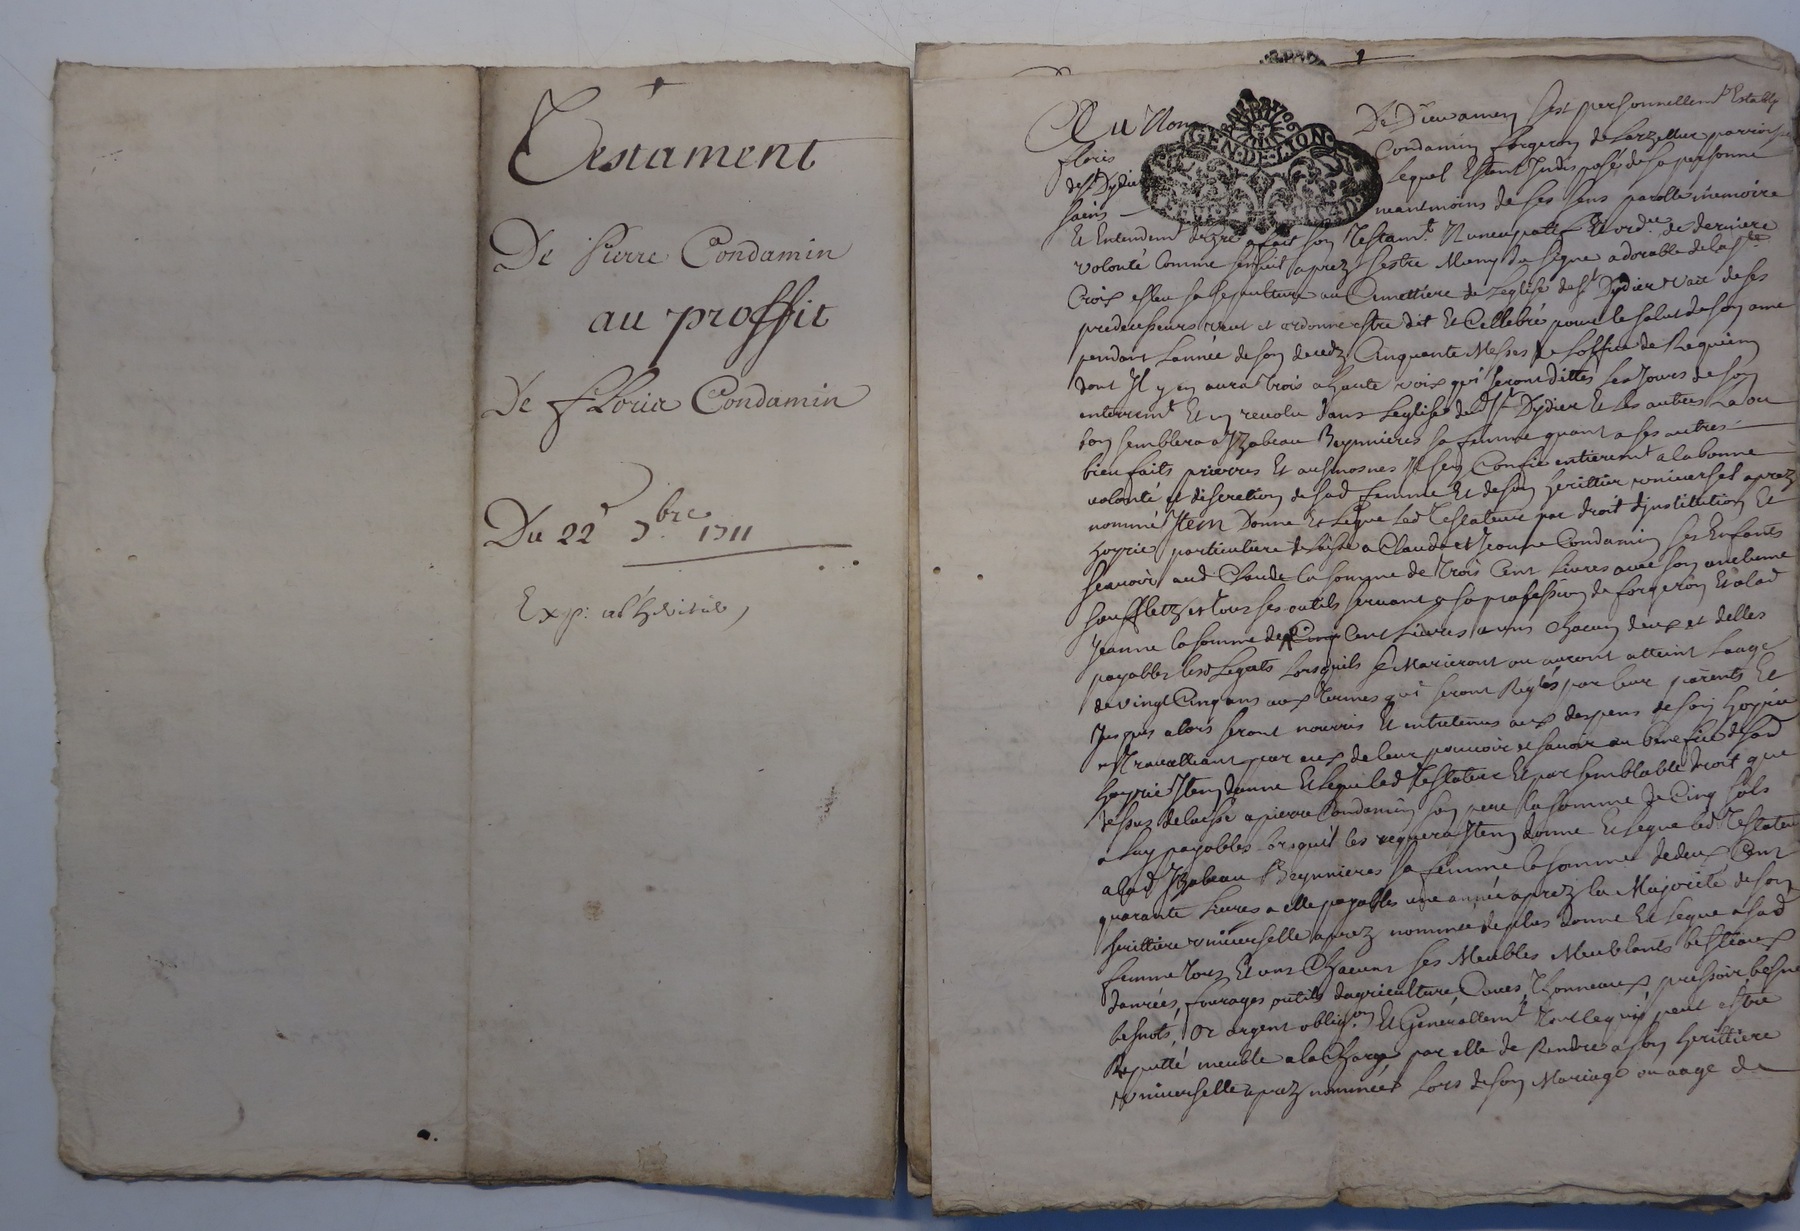 Testament
De Pierre Condamin
au proffit
De fLoria Condamin
Du 22e 7.bre 1711
Exp:
GEN·DE·LION
Au Nom De Dieu amen Sest personnellemt Estably
floris Condamin forgeron de Larzellier parroisse
de St Dydier Lequel Estant Indisposé de sa personne
sains neantmoins de ses sens parolle memoire
Et Entendemt de gré a fait son Testamt Nuncupatif Et ordre de derniere
volonté Comme sensuit aprez sestre Muny du signe adorable de la Ste
Croix esleu sa sepulture au Cimettiere de Leglise de St Dydier vait de ses
predecesseurs veut et ordonne estre dit Et Cellebré pour le salut de son ame
pendant Lannée de son decedz Cinquante Messes de Loffice de Requiem
dont Il y en aura Trois a haute voix qui seront dittes les Jours de son
enterremt Et revolu dans Leglise dud St Dydier Et les autres La ou
bon semblera a Izabeau Beynnieres sa femme quant a ses autres
bien faits prierres Et ausmosnes Il sen Confie entieremt a la bonne
volonté et discretion de sad femme Et de son heritier universel aprez
nommé Item Donne Et Legue Led Testateur par droit dinstitution Et
hoyrie particuliere delaisse a Claude et Jeanne Condamin ses Enfants
scavoir aud Claude la somme de Trois Cent Livres avec son anclume
soufflets et tous ses outils servant a sa profession de forgeron Et a lad
Jeanne la somme de Cinq Cent Livres a uns chacun deux et delles
payables lesd Legats Lorsquils se Marieront ou auront atteint Laage
de vingt Cinq ans aux termes qui seront Reglés par leur parents Et
Jusques alors seront nourris Et entretenus aux despens de son hoyrie
en Travalliant par eux de leur pouvoir et scavoir au benefice de sad
hoyrie Item donne Et Legue led Testateur Et par semblable droit que
dessus delaisse a pierre Condamin son pere la somme de Cinq sols
a Luy payables Lorsquil les requera Item donne Et Legue led Testateur
a lad Izabeau Beynnieres sa femme la somme de deux Cent
quarante Livres a elle payables une année aprez la Majorité de son
herittiere universelle aprez nommée de plus donne Et Legue a sad
femme Tous Et uns Chacuns ses Meubles Meublants bestiaux
danrées, fourages, outils dagriculture, Cuves, Thonneaux pressoir
or argent obligon Et Generallemt Tout ce qui peut estre
Reputté meuble a la Charge par elle de Rendre a son herittiere
universelle aprez nommée Lors de son Mariage ou aage de